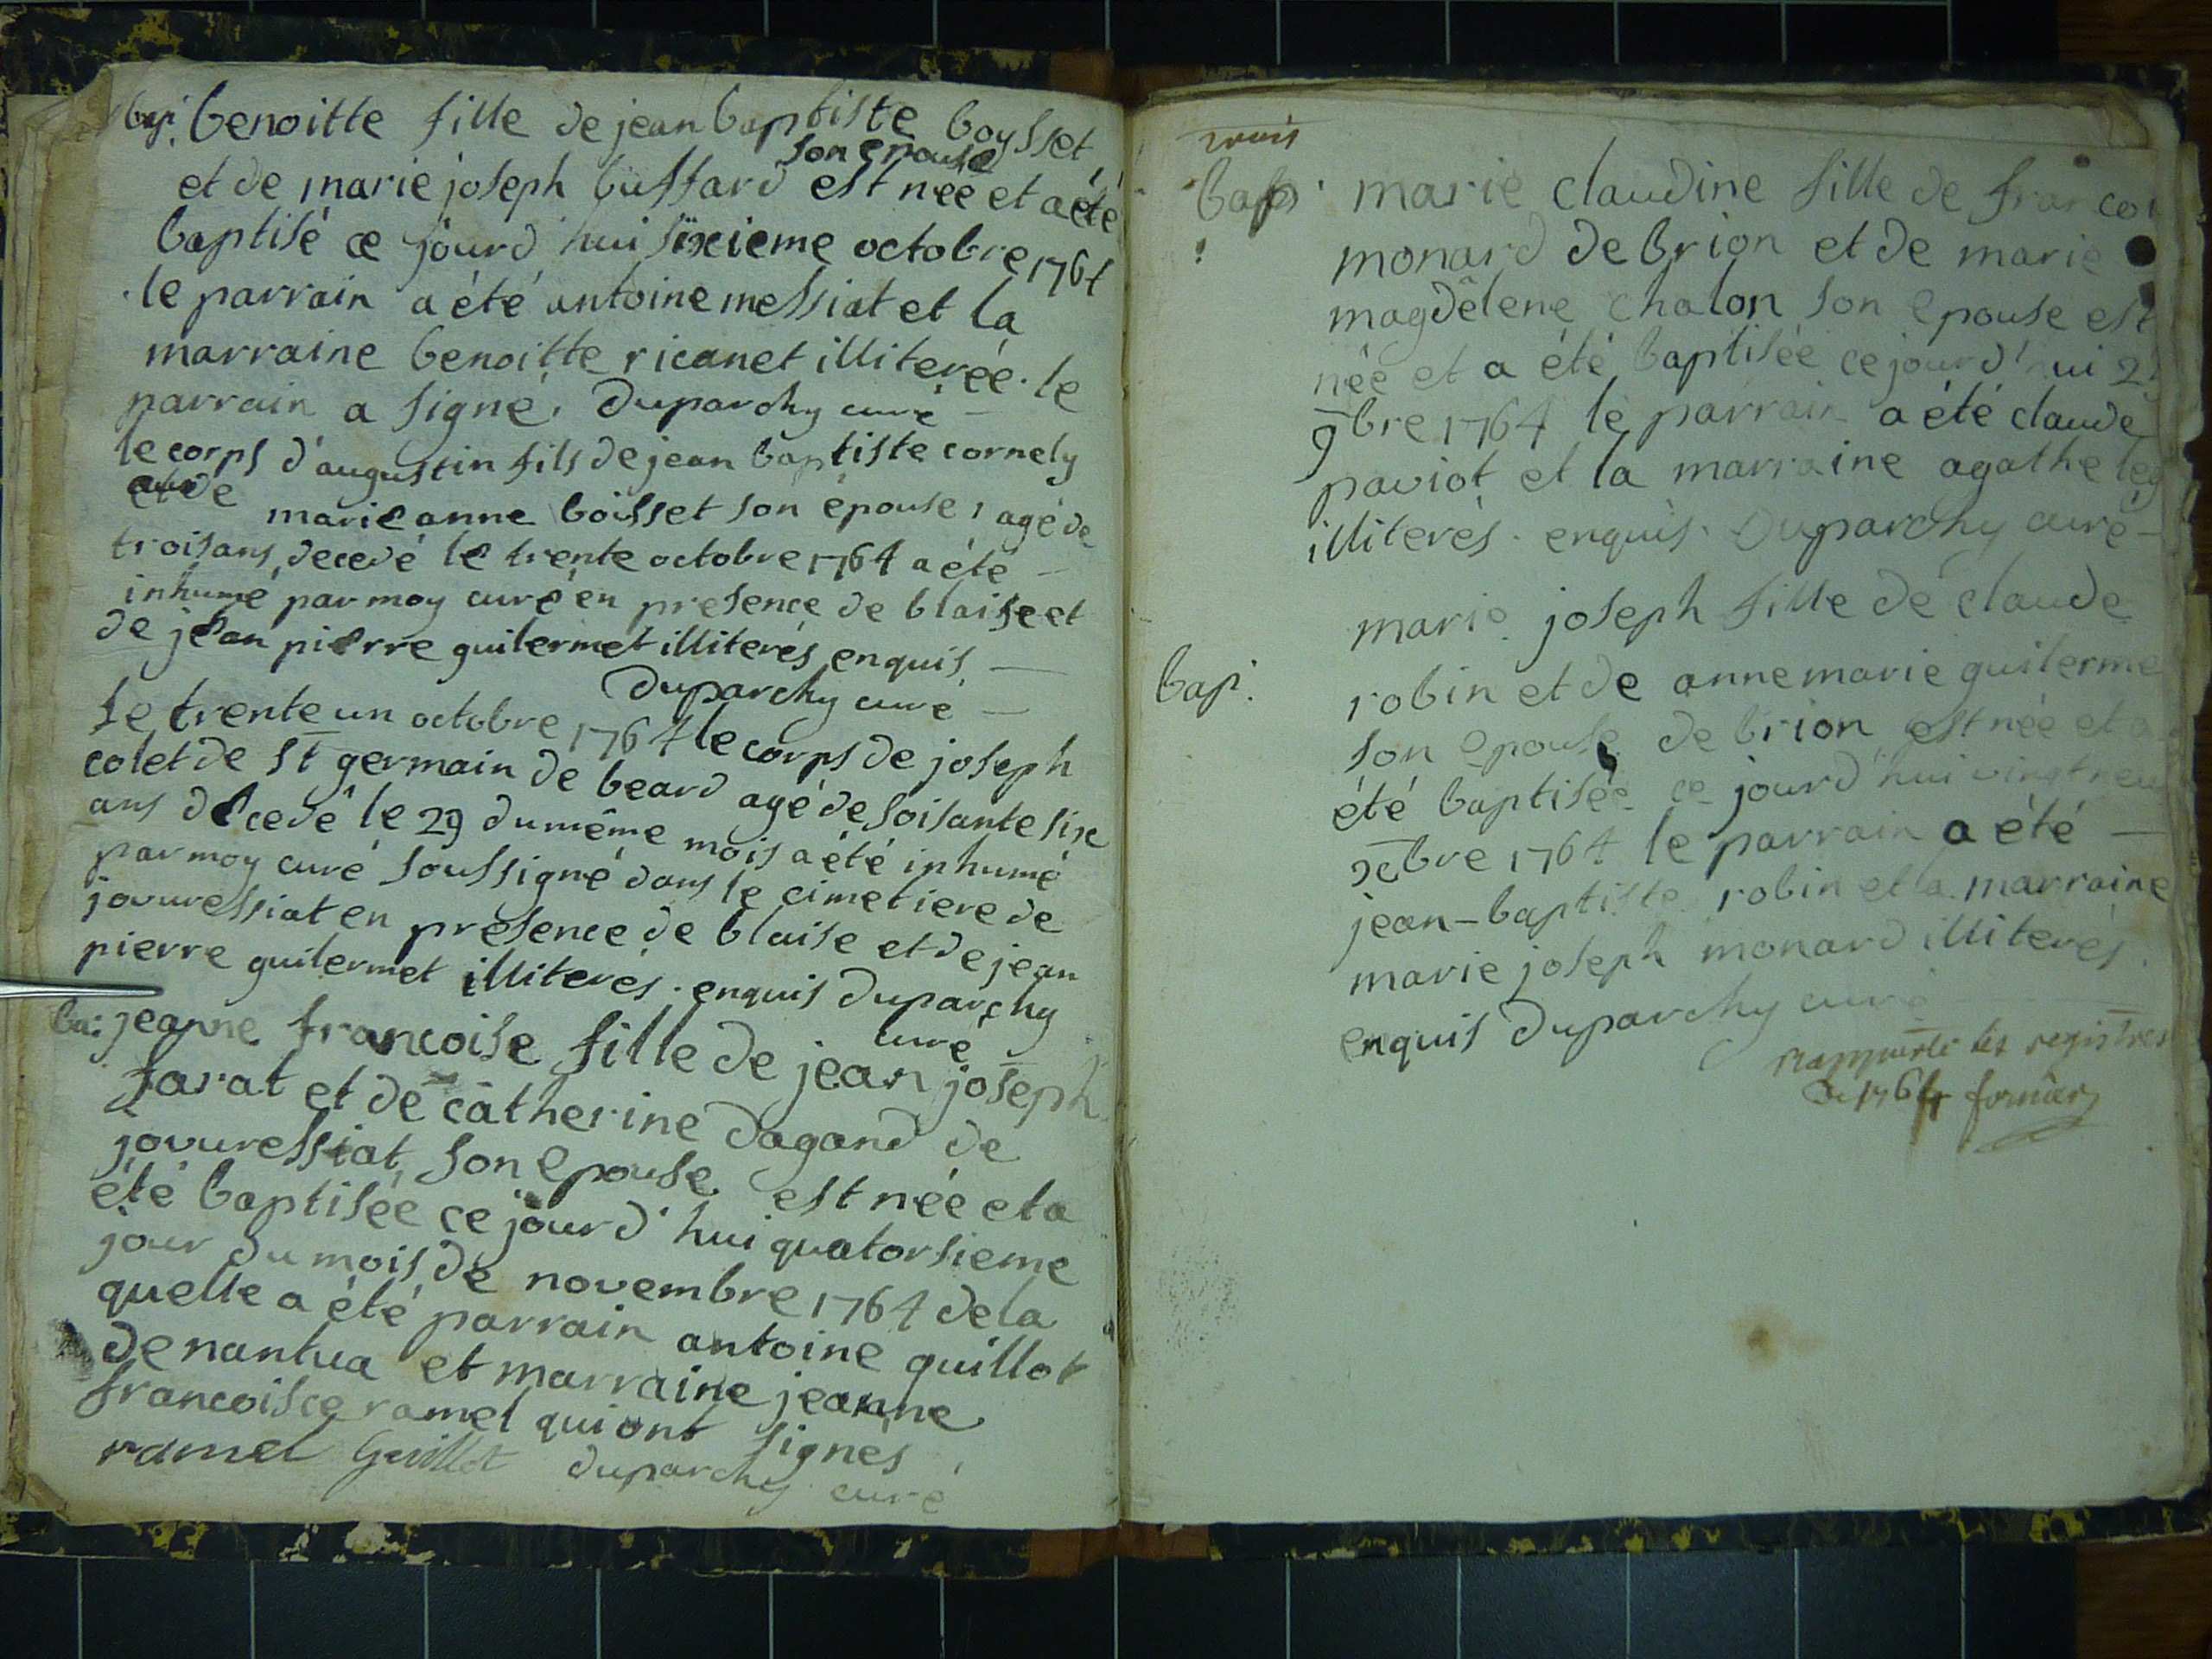 bap. benoitte fille de jean baptiste boysset
son epouse
et de marie joseph bussard est née et a été
baptisé ce jourd'hui sixieme octobre 1764
le parrain a été antoine messiat et la
marraine benoitte ricanet illiterée. le
parrain a signé. Duparchy curé
le corps d'augustin fils de jean baptiste cornely
et de marie anne boisset son épouse, agé de
trois ans decedé le trente octobre 1764 a été
inhumé par moy curé en presence de blaise et
de jean pierre guilermet illiterés enquis
Duparchy curé
Le trente un octobre 1764 le corps de joseph
colet de st germain de beard agé de soisante six
ans decedé le 29 du même mois a été inhumé
par moy curé soussigné dans le cimetiere de
jovuressiat en presence de blaise et de jean
pierre guilermet illiterés. enquis Duparchy
curé
ba: jeanne francoise fille de jean joseph
farat et de catherine dagand de
jovuressiat son epouse est née et a
été baptisée ce jourd'hui quatorsieme
jour du mois de novembre 1764 de la
quelle a été parrain antoine guillot
de nantua et marraine jeanne
francoise ramel qui ont signés
ramel Guillot duparchy curé
bap. marie claudine fille de francoi
monard de brion et de marie
magdelene chalon son epouse est
née et a été baptisée ce jourd'hui
9bre 1764 le parrain a été claude
paviot et la marraine agathe
illiterés. enquis. Duparchy curé
marie joseph fille de claude
bap. robin et de anne marie guilerme
son epouse de brion est née et a
été baptisée ce jourd'hui vingt neu
xbre 1764 le parrain a été
jean-baptiste robin et la marraine
marie joseph monard illiterés.
enquis Duparchy curé
les registres
de 1764